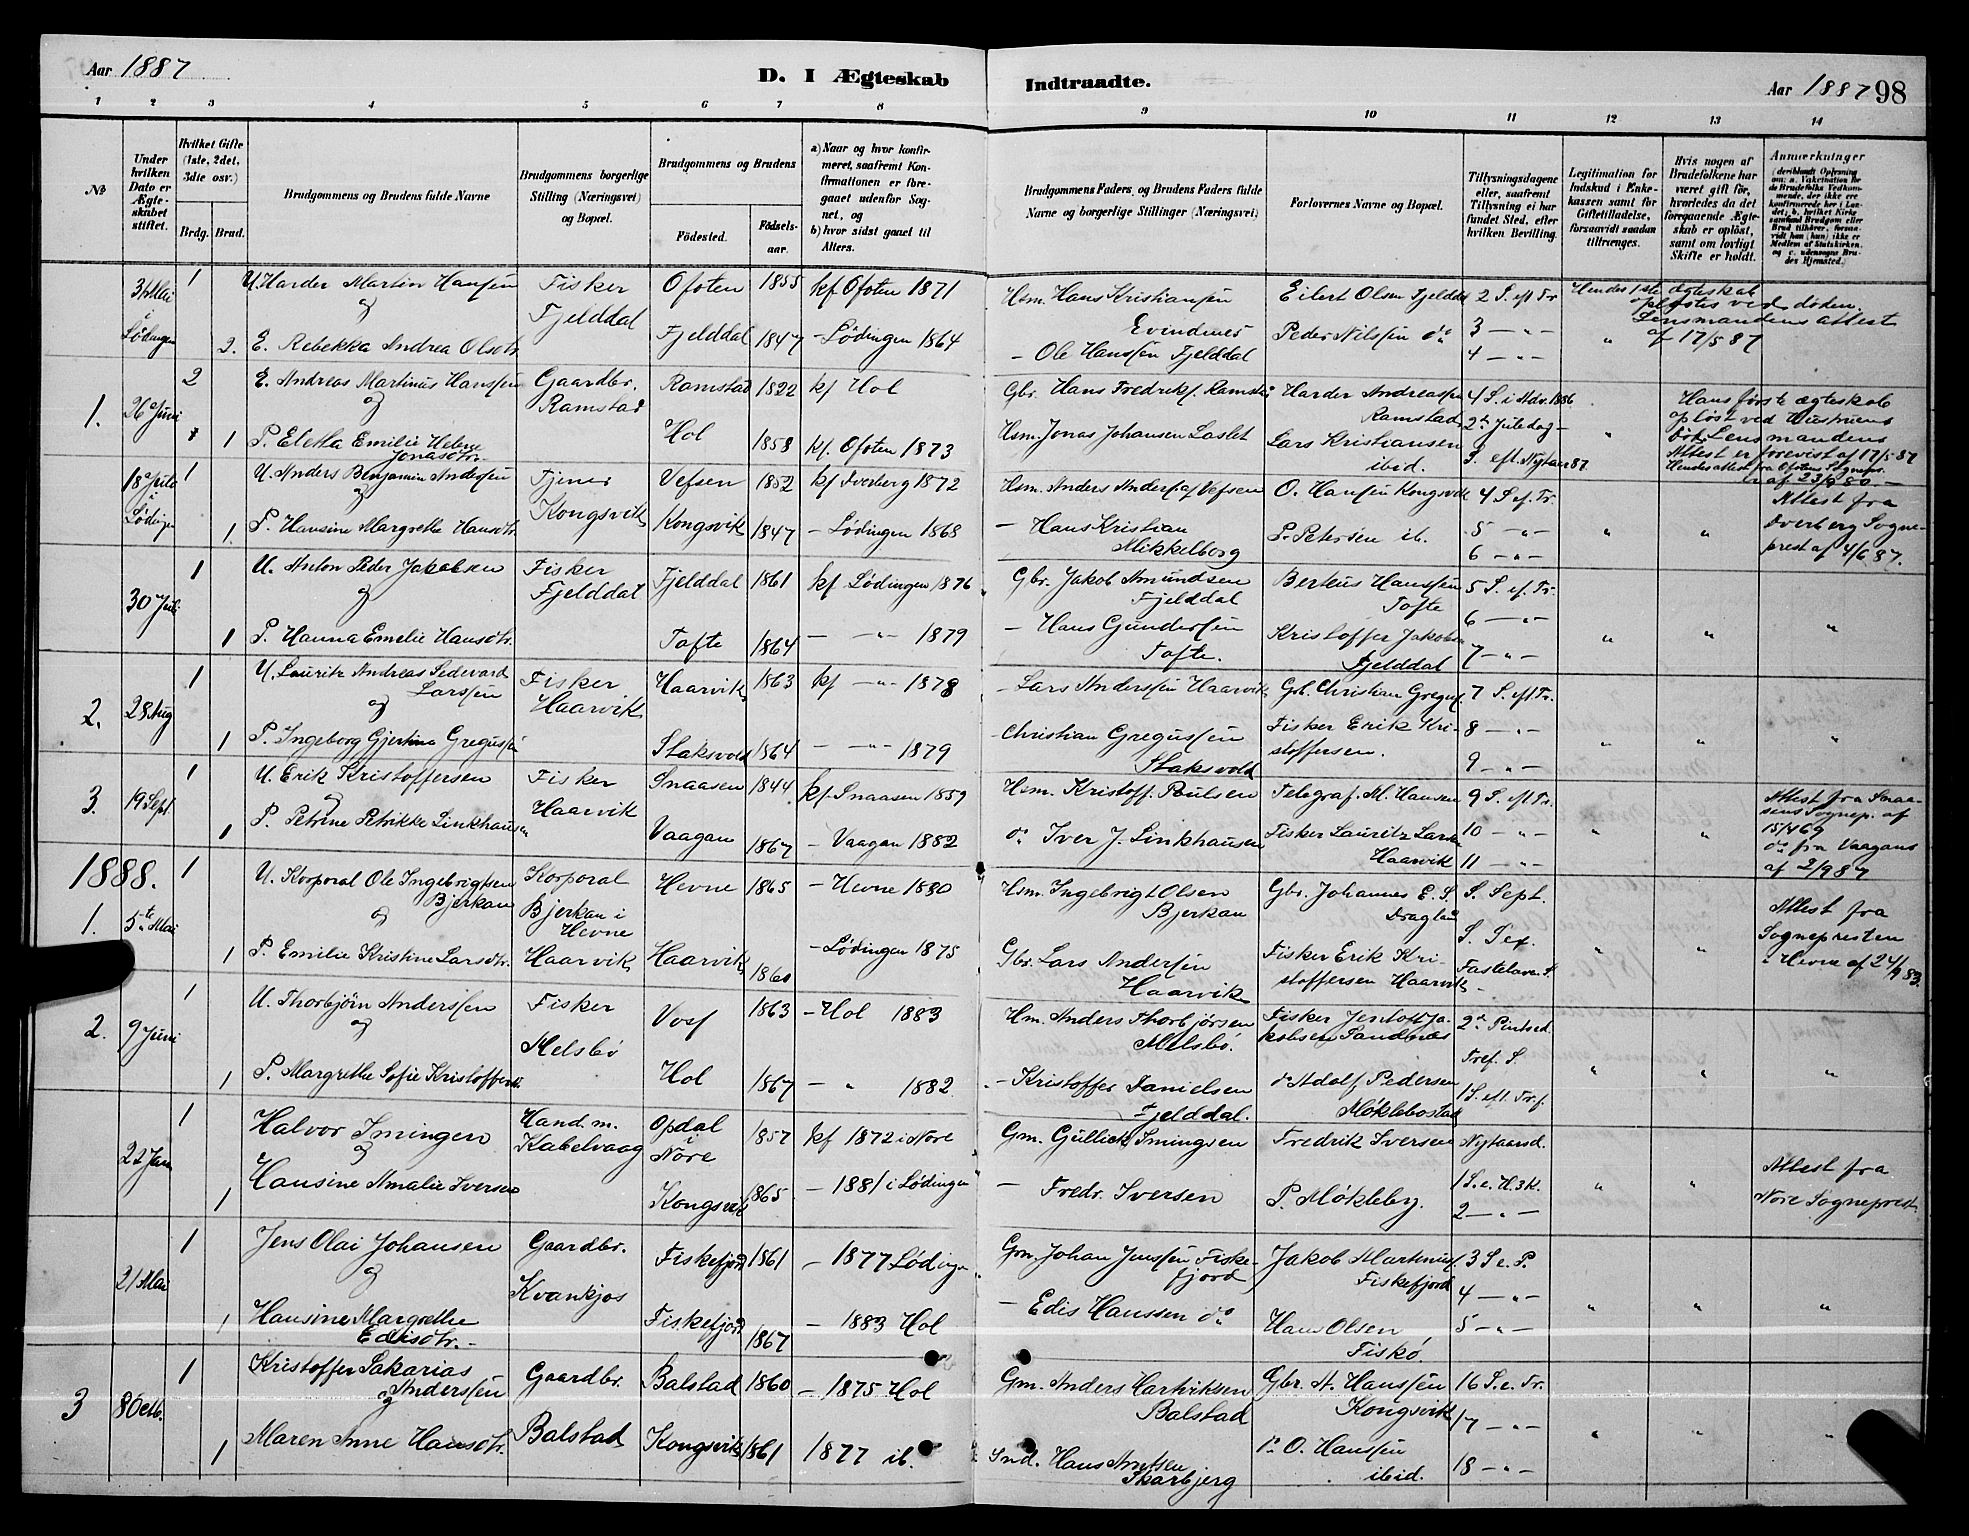 Aar 1887
D. I Ægteskab Indtraadte.
Aar 1887 98
1 2 3 4 5 6 7 8 9 10 11 12 13 14
№
Under hvilken Dato er Ægteskabet stiftet.
Hvilket Gifte (1ste, 2det, 3die osv.)
Brdg. Brud.
Brudgommens og Brudens fulde Navne
Brudgommens borgerlige Stilling (Næringsvei) og Bopæl.
Brudgommens og Brudens
Fødested. Fødselsaar.
a) Naar og hvor konfirmeret, saafremt Konfirmationen er foregaaet udenfor Sognet, og
b) hvor sidst gaaet til Alters.
Brudgommens Faders, og Brudens Faders fulde Navne og borgerlige Stillinger (Næringsvei)
Forlovernes Navne og Bopæl.
Tillysningsdagene eller, saafremt Tillysning ei har fundet Sted, efter hvilken Bevilling.
Legitimation for Indskud i Enkekassen samt for Giftetilladelse, forsaavidt saadan tiltrænges.
Hvis nogen af Brudefolkene har været gift før, hvorledes da det forrgaaende Ægteskab er opløst, samt om lovligt Skifte er holdt.
Anmærkninger (deriblandt Oplysning om: a. Vakcination for de Brudefolks Vedkommende, der ikke ere konfirmerede her i Landet; b. hvilket Kirkesamfund Brudgom eller Brud tilhører, forsaavidt han (hun) ikke er Medlem af Statskirken, og c. udensogns Brudes Hjemsted.)
31 Mai i Lødingen 1 U. Harder Martin Hansen Fisker Ofoten 1855 kf Ofoten 1871 Hsm. Hans Kristiansen Evindnes Eilert Olsen Fjelddal 2 S. eft Tr Hendes 1ste ægteskab opløstes ved døden. Lensmandens attest af 17/5 87
og Fjelddal
2. E. Rebekka Andrea Olsdtr. Fjelddal 1847 - Lødingen 1864 - Ole Hanssen Fjelddal Peder Nilssen do 3 - " - 4 - " - "
1. 26 Juni 2 E. Andreas Martinus Hanssen Gaardbr. Ramstad Ramstad 1822 kf Hol Gbr. Hans Fredrikf. Ramstad Harder Andreassen Ramstad 4 S. i Adv. 1886 Hans første ægteskab opløst ved Hustruens død. Lensmandens Attest er forevist af 17/5 87
og 2den Juledag
1 P. Eletha Emilie Helene Jonasdtr. Hol 1858 kf. Ofoten 1873 Hsm. Jonas Johansen Laslet Lars Kristiansen ibid. S. eft. Nytaar 87 " Hendes attest fra Ofotens Sognepr.
18 Juli i Lødingen 1 U. Anders Benjamin Andersen Tjener Kongsvik Vefsen 1852 kf Overberg 1872 Hsm. Anders Anders af Vefsen O. Hansen Kongsvik 4 S. ef. Tr. Attest fra Overberg Sogneprest af 4/6 87.
og
1. P. Hansine Margrethe Hansdtr. Kongsvik 1847 - Lødingen 1868 - Hans Kristian Mikkelborg P. Petersen ib. 5 - " - 6 - " - " "
30 Juli 1 U. Anton Peder Jakobsen Fisker Fjelddal Fjelddal 1861 kf Lødingen 1876 Gbr. Jakob Amundsen Fjelddal Berteus Hanssen Tofte 5 S. ef. Tr.
og 6 - " -
1 P. Hanna Emelie Hansdtr. Tofte 1864 - - " - 1879 - Hans Gundersen Tofte. Kristoffer Jakobsen Fjelddal 7 - " - " " "
2. 28 Aug 1 U. Lauritz Andreas Sedevard Larssen Fisker Haarvik Haarvik 1863 kf - " - 1878 - Lars Anderssen Haarvik Gb. Christian Gregus. 7 S. eft Tr.
og 8 - " -
1 P. Ingeborg Gjertina Gregussen Staksvold 1864 - - " - 1879 - Christian Gregussen Staksvold Fisker Erik Kristoffersen. 9 - " - " " "
3. 19 Sept. 1 U. Erik Kristoffersen Fisker Haarvik Snaasen 1844 kf. Snaasen 1859 Hsm. Kristoff. Poulsen Telegraf. M. Hansen 9 S. eft Tr. Attest fra Snaasens Sognep. af 15/4 69 do fra Vaagans af 2/9 87
og
1 P. Petrine Petrikke Linkhausen Vaagan 1867 - Vaagan 1882 do Iver J. Linkhausen Fisker Lauritz Larsen Haarvik 10 - " - 11 - " - " "
1888.
1. 5te Mai 1 U. Korporal Ole Ingebrigtsen Bjerkan Korporal Bjerkan i Hevne Hevne 1865 - Hevne 1880 Hsm. Ingebrigt Olsen Bjerkan Gbr. Johannes E. S. Dragland S. Sept. Attest fra Sognepresten i Hevne af 24/9 83.
og S. Sex.
1 P. Emilie Kristine Larsdtr. Haarvik Haarvik 1860 - Lødingen 1875 Gbr. Lars Andersen Haarvik Fisker Erik Kristoffersen Haarvik Fastelavn S. " "
2. 9 Juni 1 U. Thorbjørn Anderssen Fisker Melsbø Voss 1863 - Hol 1883 Hm. Anders Thorbjørsen Melsbø. Fisker Jentoft Jakobsen Sandnes 2d Pintsed.
og Tref. S.
1 P. Margrethe Sofie Kristoffersdtr. Hol 1867 - " 1882. - Kristoffer Danielsen Fjelddal. do Adolf Pedersen Møklebostad 1 S. eft. Tr. f. " " "
22 Jan 1 Halvor Imingen Hand. m. Kabelvaag Opdal i Nore 1857 kf 1872 i Nore Gm. Gullick Imingsen Fredrik Iversen Nytaarsd. Attest fra Nore Sogneprest
og
1 Hansine Amalie Iversen Kongsvik 1865 - 1881 i Lødingen - Fredr. Iversen P. Møkleby. 1 S. e. H. 3 K. 2 - " - " "
21 Mai 1 Jens Olai Johansen Gaardbr. Kvankjos Fiskefjord 1861 - 1877 Lødingen Gm. Johan Jenssen Fiskefjord Jakob Martinus. Fiskefjord 3 S. e. P.
og 4 - " -
1 Hansine Margrethe Edisdtr. Fiskefjord 1867 - 1883 Hol - Edis Hanssen do Hans Olsen Fiskø. 5 - " - " " "
3 8 Octb. 1 Kristoffer Sakarias Anderssen Gaardbr. Balstad Balstad 1860 - 1875 Hol Gm. Anders Hartviksen Balstad Gbr. A. Hanssen Kongsvik 16 S. e. Tr.
og 17 - " -
1 Maren Anne Hansdtr. Kongsvik 1861 1877 ib. Ind. Hans Amtsen Skarbjerg do O. Hanssen ibid. 18 - " - " " "